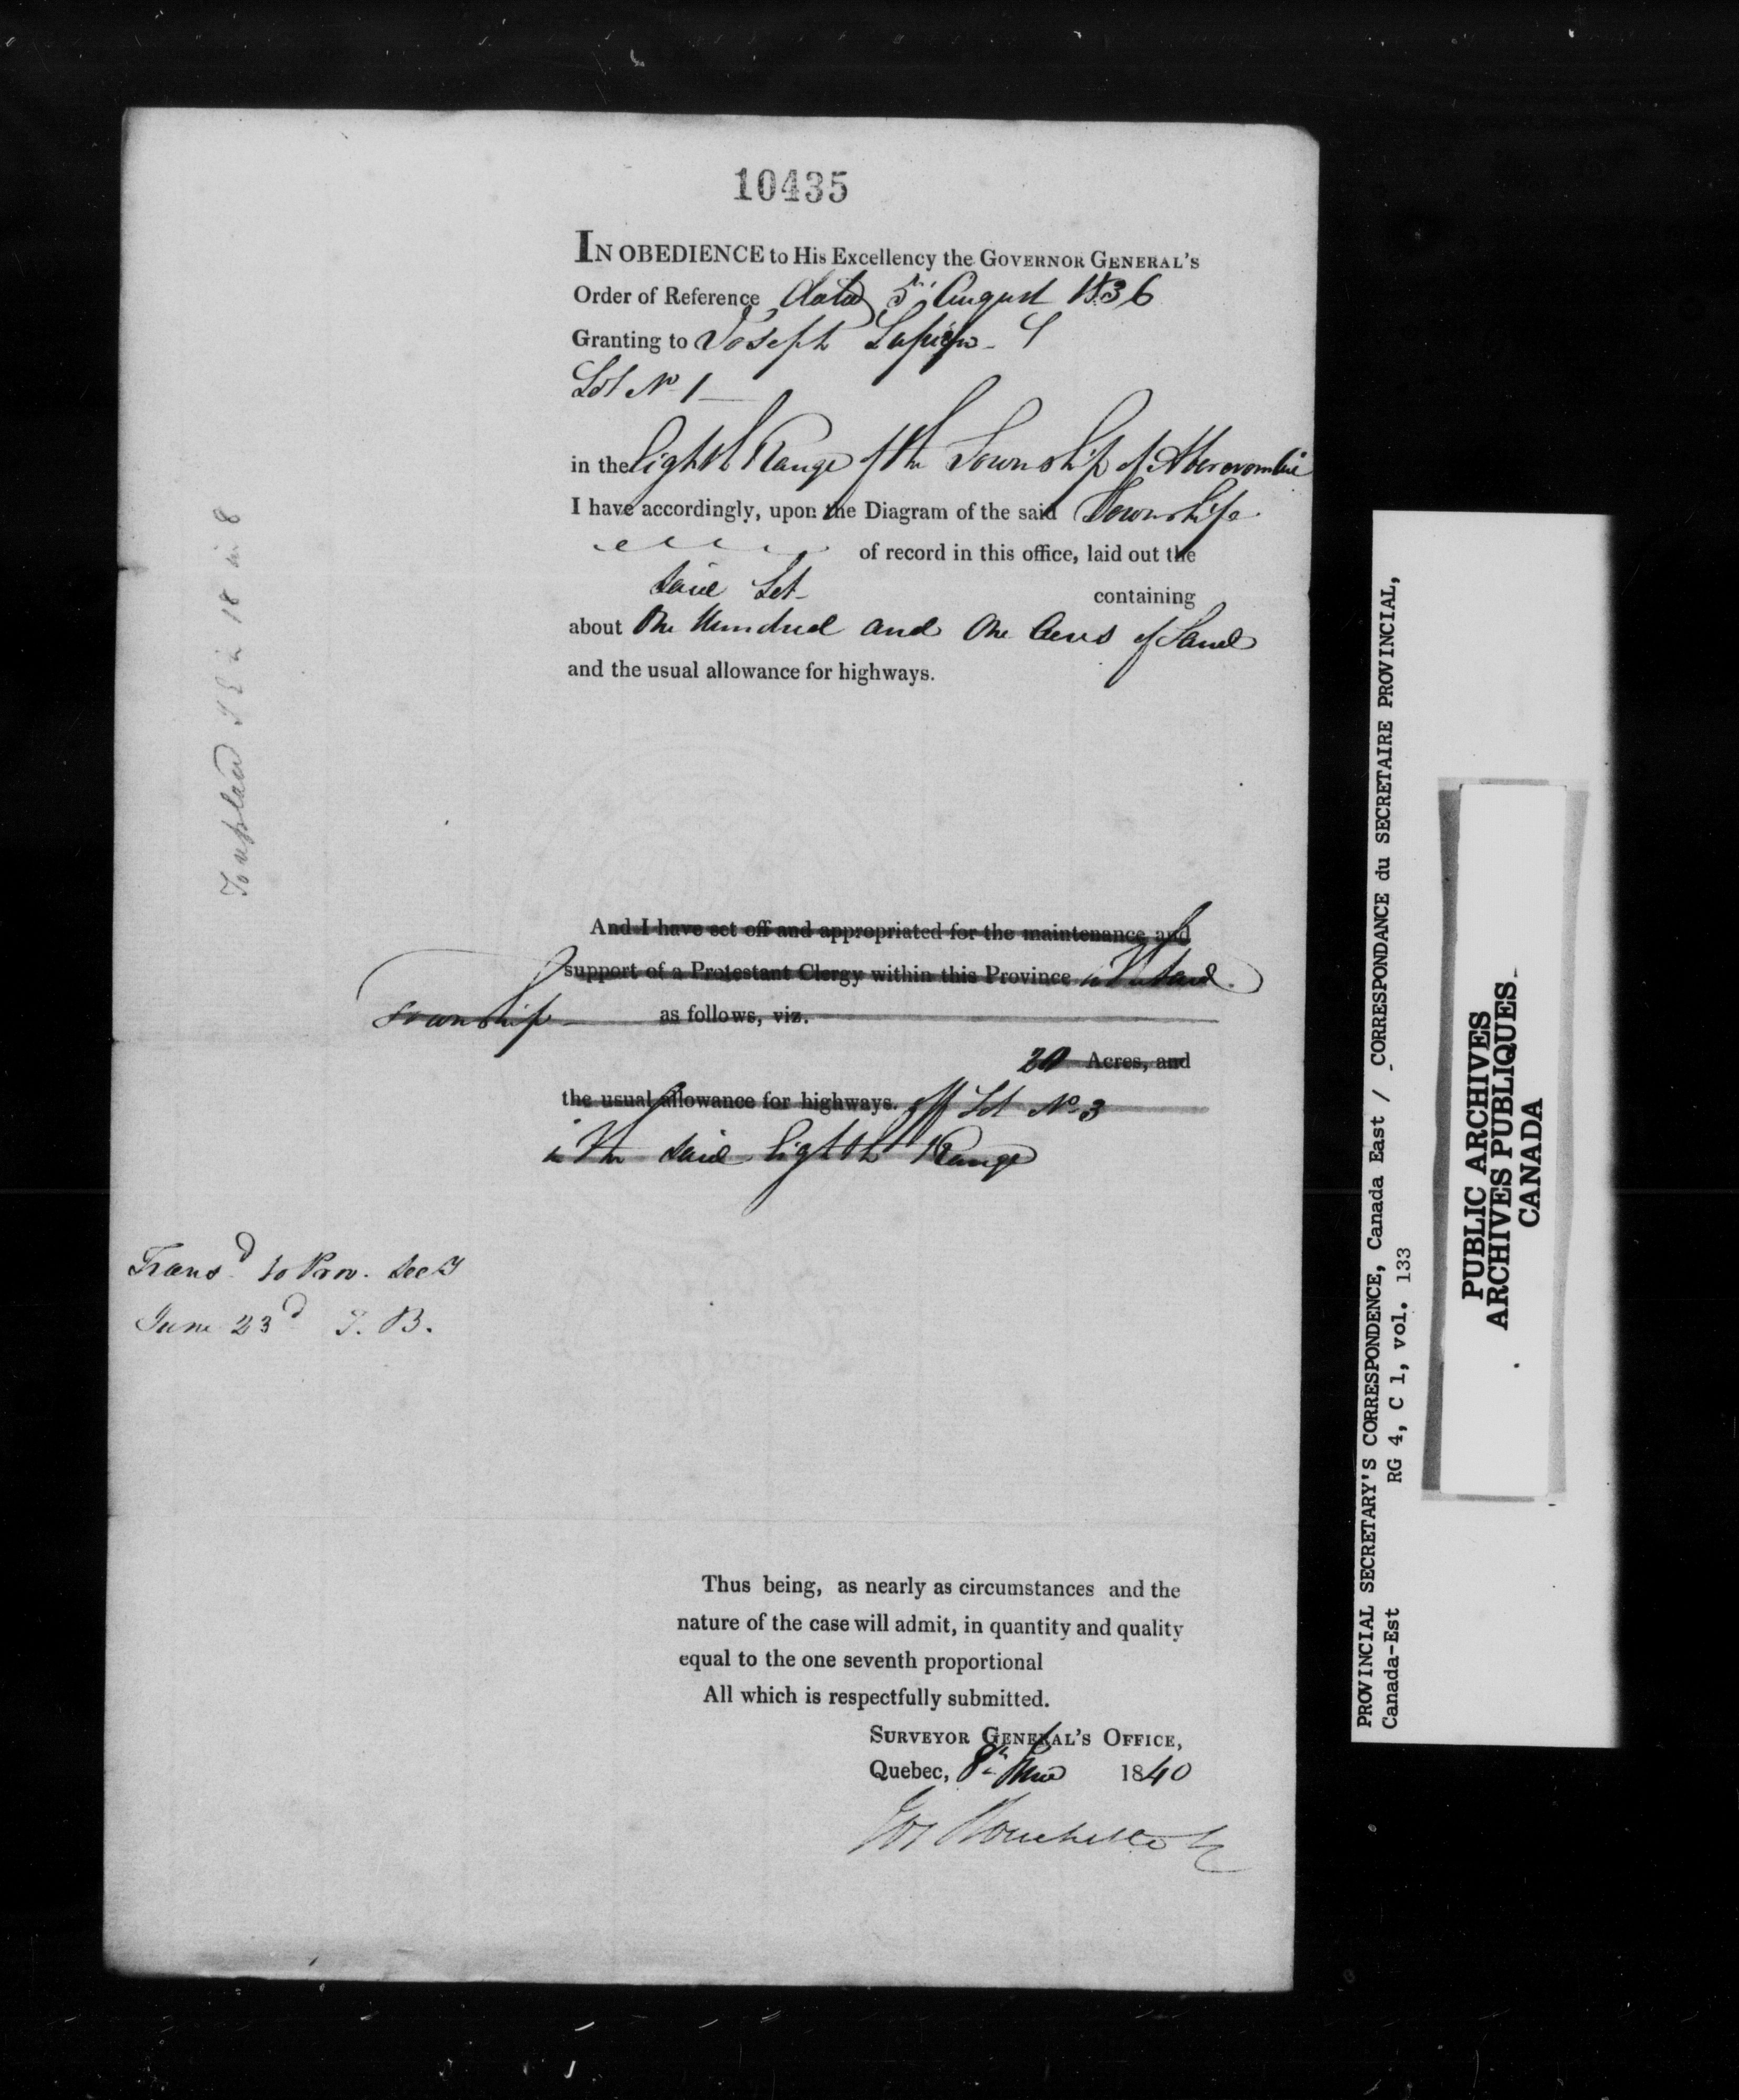 10435
IN OBEDIENCE to His Excellency the GOVERNOR GENERAL'S
Order of Reference dated 5th August 1836
Granting to Joseph
Lot No 1
in the Eighth Range of the Township of Abercrombie
I have accordingly, upon the Diagram of the said Township
of record in this office, laid out the
said Lot containing
about One Hundred and One Acres of Land
and the usual allowance for highways.
And I have set off and appropriated for the maintenance and
support of a Protestant Clergy within this Province in the said
Township as follows, viz.
20 Acres, and
the usual allowance for highways. off Lot No 3
in the said Eighth Range
Transd to Prov. Secy
June 23d T. B.
Thus being, as nearly as circumstances and the
nature of the case will admit, in quantity and quality
equal to the one seventh proportional
All which is respectfully submitted.
SURVEYOR GENERAL'S OFFICE,
Quebec, 8th June 1840
Jos Bouchette
in 18 in 8
PROVINCIAL SECRETARY'S CORRESPONDENCE, Canada East / CORRESPONDANCE du SECRETAIRE PROVINCIAL,
Canada-Est RG 4, C 1, vol. 133
PUBLIC ARCHIVES
ARCHIVES PUBLIQUES
CANADA